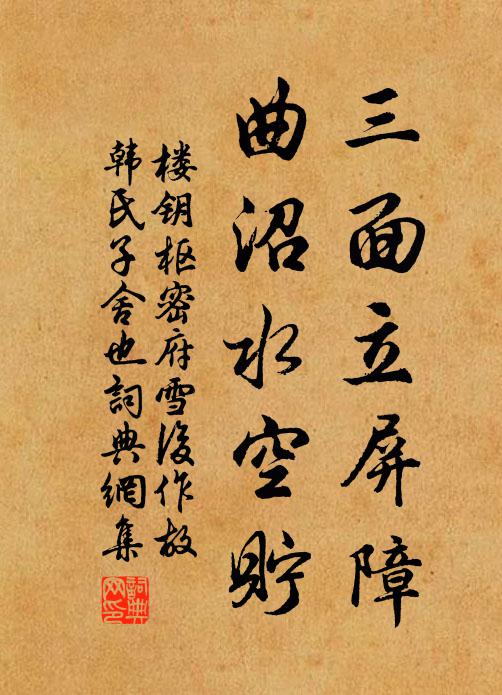 三面立屏障
曲沼水空貯
楼钥枢密府雪後作故
韩氏子舍也詞典網集
詞典
网印